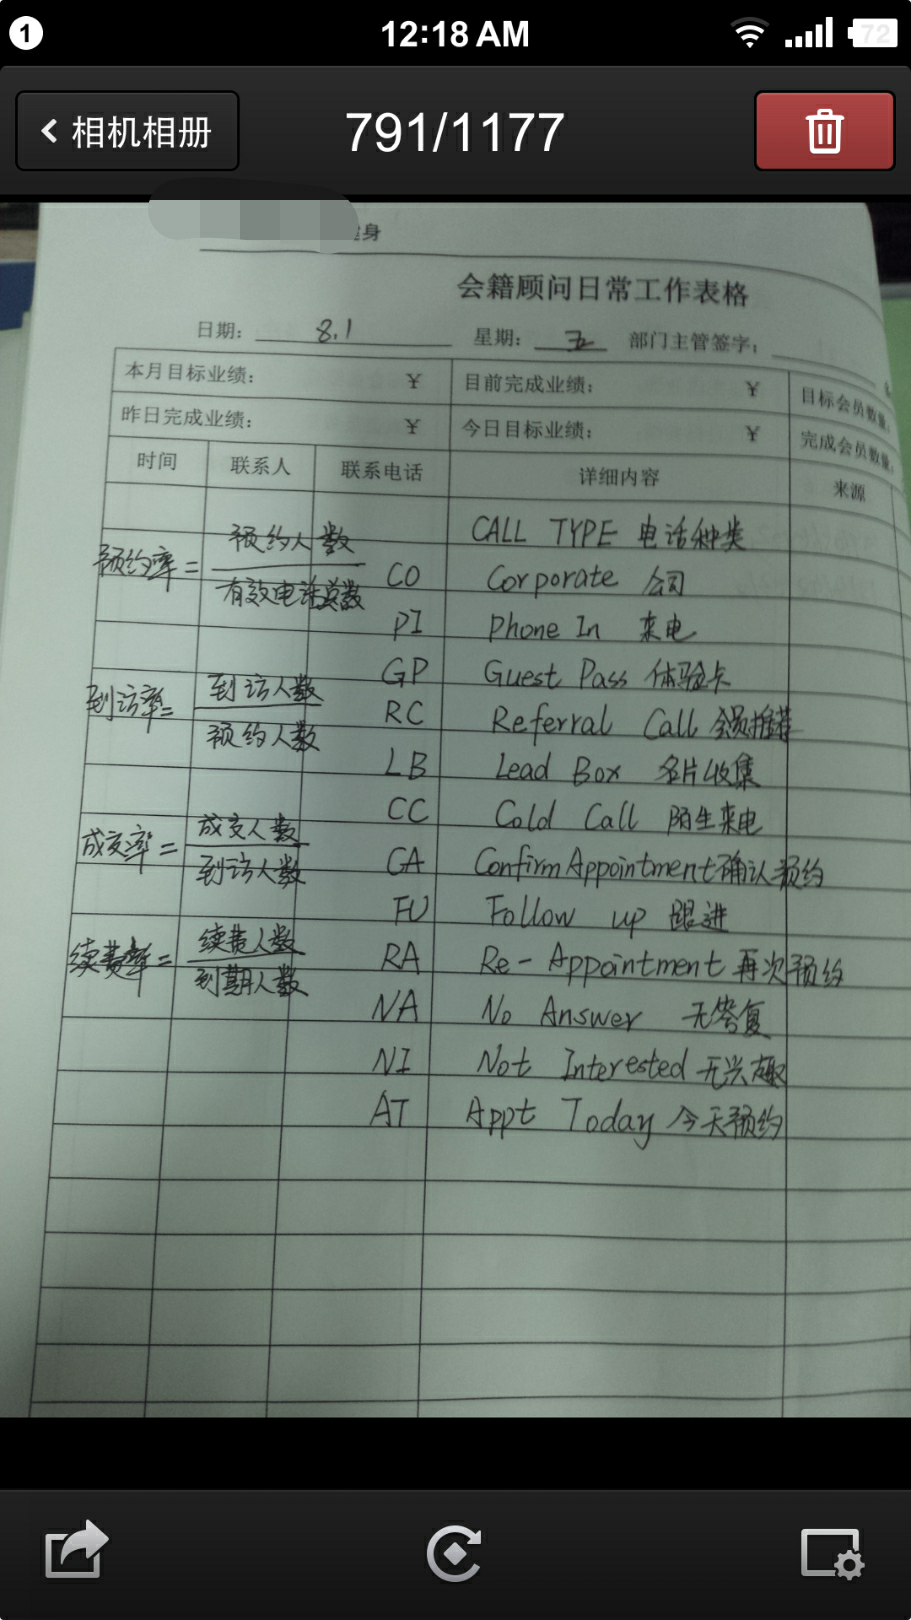 1
12:18 AM
72
相机相册
791/1177
身
会籍顾问日常工作表格
日期: 8.1 星期: 五 部门主管签字:
本月目标业绩: ¥ 目前完成业绩: ¥ 目标会员数量:
昨日完成业绩: ¥ 今日目标业绩: ¥ 完成会员数量:
时间 联系人 联系电话 详细内容 来源
CALL TYPE 电话种类
预约率= 预约人数
有效电话总数
CO Corporate 公司
PI Phone In 来电
GP Guest Pass 体验卡
到访率= 到访人数
预约人数
RC Referral Call 会员推荐
LB Lead Box 名片收集
CC Cold Call 陌生来电
成交率= 成交人数
到访人数
CA Confirm Appointment 确认预约
FU Follow up 跟进
续费率= 续费人数
到期人数
RA Re-Appointment 再次预约
NA No Answer 无答复
NI Not Interested 无兴趣
AT Appt Today 今天预约